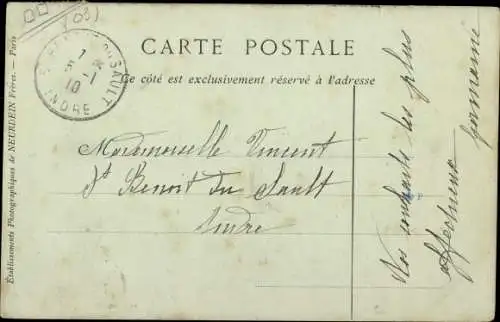 (03)
CARTE POSTALE
Ce côté est exclusivement réservé à l'adresse
ST BENOIT-DU-SAULT
INDRE
7 1
10
Mademoiselle Vincent
St Benoit du Sault
Indre
Nos souhaits les plus
affectueux Germaine
Établissements Photographiques de NEURDEIN Frères. — Paris